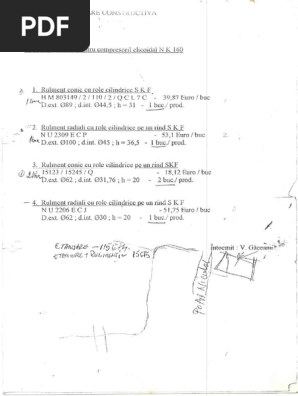 PDF
CONSTRUCTIVA
pentru compresorul elicoidal N K 160
1. Rulment conic cu role cilindrice S K F
H M 803149 / 2 / 110 / 2 / Q C L 7 C - 39,87 Euro / buc
D.ext. Ø89 ; d.int. Ø44,5 ; h = 31 - 1 buc / prod.
2. Rulment radiali cu role cilindrice pe un rind S K F
N U 2309 E C P - 53,1 Euro / buc
D.ext. Ø100 ; d.int. Ø45 ; h = 36,5 - 1 buc / prod.
3. Rulment conic cu role cilindrice pe un rind SKF
15123 / 15245 / Q - 18,12 Euro / buc
D.ext. Ø62 ; d.int. Ø31,76 ; h = 20 - 2 buc / prod.
4. Rulment radiali cu role cilindrice pe un rind S K F
N U 2206 E C J - 51,75 Euro / buc
D.ext. Ø62 ; d.int. Ø30 ; h = 20 - 1 buc / prod.
ETANSARE
Intocmit : V.